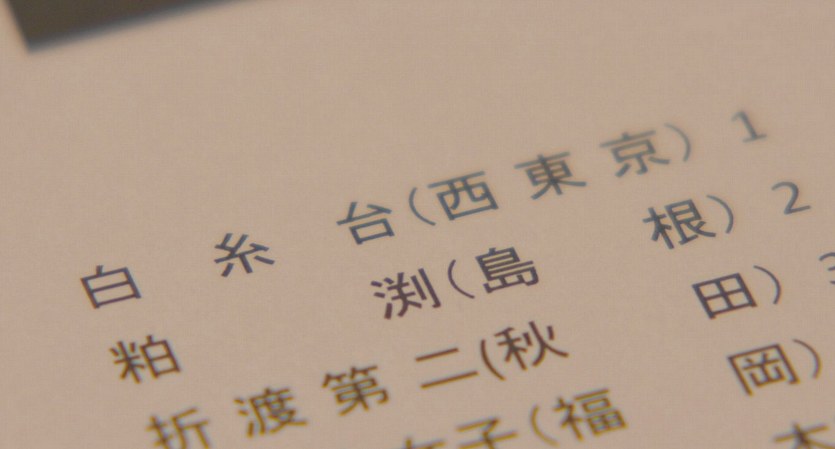 白糸台(西東京) 1
粕渕(島根) 2
折渡第二(秋田) 3
女子(福岡)
本